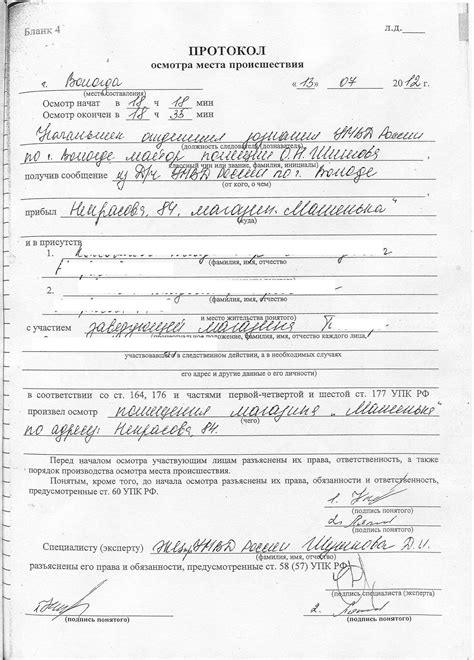 Бланк 4
Л.Д.____
ПРОТОКОЛ
осмотра места происшествия
г. Вологда «13» 07 2012 г.
(место составления)
Осмотр начат в 18 ч 18 мин
Осмотр окончен в 18 ч 35 мин
Начальник отделения дознания УМВД России
(должность следователя (дознавателя),
по г. Вологде майор полиции О.Н. Шитова
классный чин или звание, фамилия, инициалы)
получив сообщение из Д/ч УМВД России по г. Вологде
(от кого, о чем)
прибыл Некрасова, 84. магазин "Машенька"
(куда)
и в присутств
1.
(фамилия, имя, отчество
2.
(фамилия, имя, отчество
и место жительства понятого)
с участием заведующей магазина П
(процессуальное положение, фамилия, имя, отчество каждого лица,
участвовавшего в следственном действии, а в необходимых случаях
его адрес и другие данные о его личности)
в соответствии со ст. 164, 176 и частями первой-четвертой и шестой ст. 177 УПК РФ
произвел осмотр помещения магазина „Машенька"
(чего)
по адресу: Некрасова 84.
Перед началом осмотра участвующим лицам разъяснены их права, ответственность, а также
порядок производства осмотра места происшествия.
Понятым, кроме того, до начала осмотра разъяснены их права, обязанности и ответственность,
предусмотренные ст. 60 УПК РФ.
1.
(подпись понятого)
2.
(подпись понятого)
Специалисту (эксперту) УМВД России Д.И.
(фамилия, имя, отчество)
разъяснены его права и обязанности, предусмотренные ст. 58 (57) УПК РФ
(подпись специалиста (эксперта)
1. 2.
(подпись понятого) (подпись понятого)